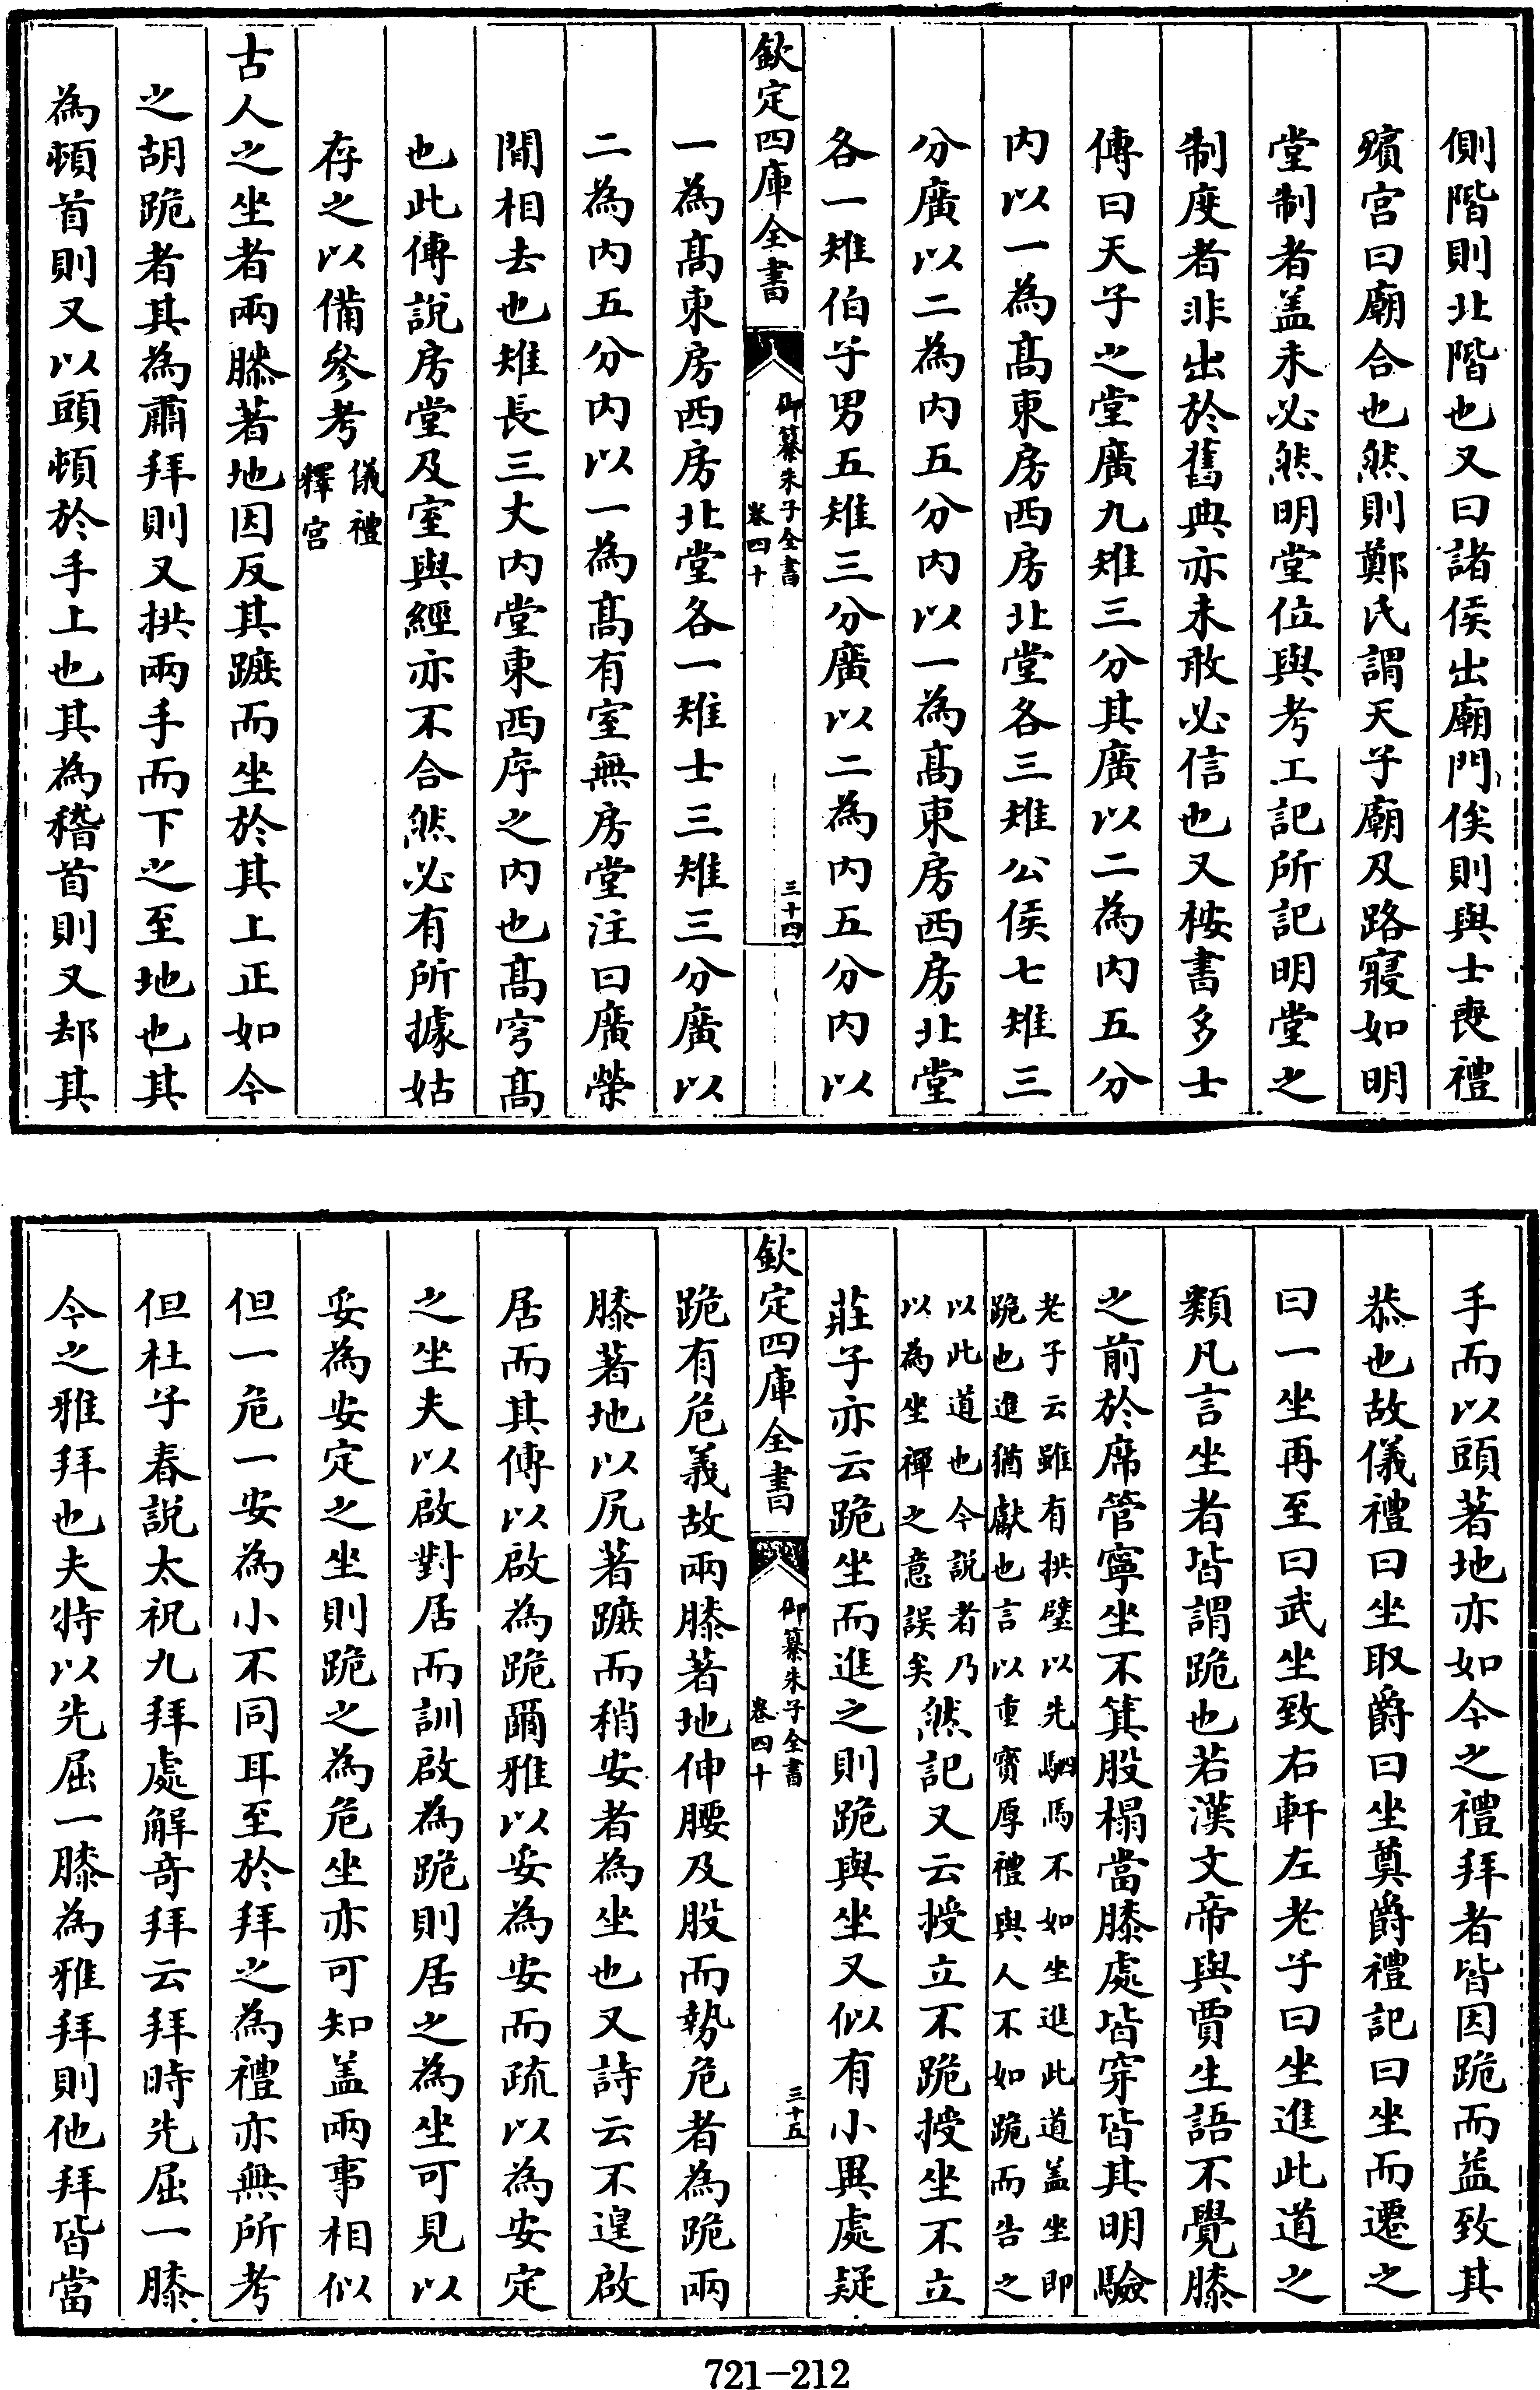 側階則北階也又曰諸侯出廟門俟則與士喪禮
殯宮曰廟合也然則鄭氏謂天子廟及路寢如明
堂制者盖未必然明堂位與考工記所記明堂之
制度者非出於舊典亦未敢必信也又桉書多士
傳曰天子之堂廣九雉三分其廣以二為内五分
内以一為髙東房西房北堂各三雉公侯七雉三
分廣以二為内五分内以一為髙東房西房北堂
各一雉伯子男五雉三分廣以二為内五分内以
欽定四庫全書
御纂朱子全書
卷四十
三十四
一為髙東房西房北堂各一雉士三雉三分廣以
二為内五分内以一為髙有室無房堂注曰廣榮
間相去也雉長三丈内堂東西序之内也髙穹髙
也此傳說房堂及室與經亦不合然必有所據姑
存之以備參考儀禮
釋宮
古人之坐者兩膝著地因反其蹠而坐於其上正如今
之胡跪者其為肅拜則又拱兩手而下之至地也其
為頓首則又以頭頓於手上也其為稽首則又却其
手而以頭著地亦如今之禮拜者皆因跪而益致其
恭也故儀禮曰坐取爵曰坐奠爵禮記曰坐而遷之
曰一坐再至曰武坐致右軒左老子曰坐進此道之
類凡言坐者皆謂跪也若漢文帝與賈生語不覺膝
之前於席管寧坐不箕股榻當膝處皆穿皆其明驗
老子云雖有拱璧以先駟馬不如坐進此道盖坐即
跪也進猶獻也言以重寳厚禮與人不如跪而告之
以此道也今説者乃
以為坐禪之意誤矣然記又云授立不跪授坐不立
莊子亦云跪坐而進之則跪與坐又似有小異處疑
欽定四庫全書
御纂朱子全書
卷四十
三十五
跪有危義故兩膝著地伸腰及股而勢危者為跪兩
膝著地以尻著蹠而稍安者為坐也又詩云不遑啟
居而其傳以啟為跪爾雅以妥為安而疏以為安定
之坐夫以啟對居而訓啟為跪則居之為坐可見以
妥為安定之坐則跪之為危坐亦可知盖兩事相似
但一危一安為小不同耳至於拜之為禮亦無所考
但杜子春說太祝九拜處解奇拜云拜時先屈一膝
今之雅拜也夫特以先屈一膝為雅拜則他拜皆當
721-212